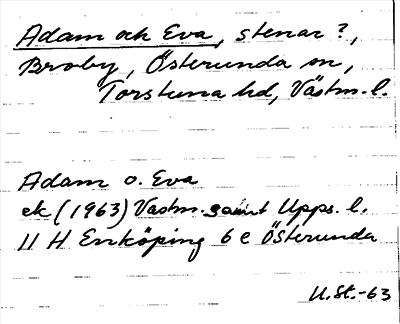 Adam och Eva, stenar?,
Broby, Österunda sn,
Torstuna hd, Västm. l.
Adam o. Eva
ek (1963) Västm. samt Upps. l.
11 H Enköping 6 e Österunda
U.St.-63